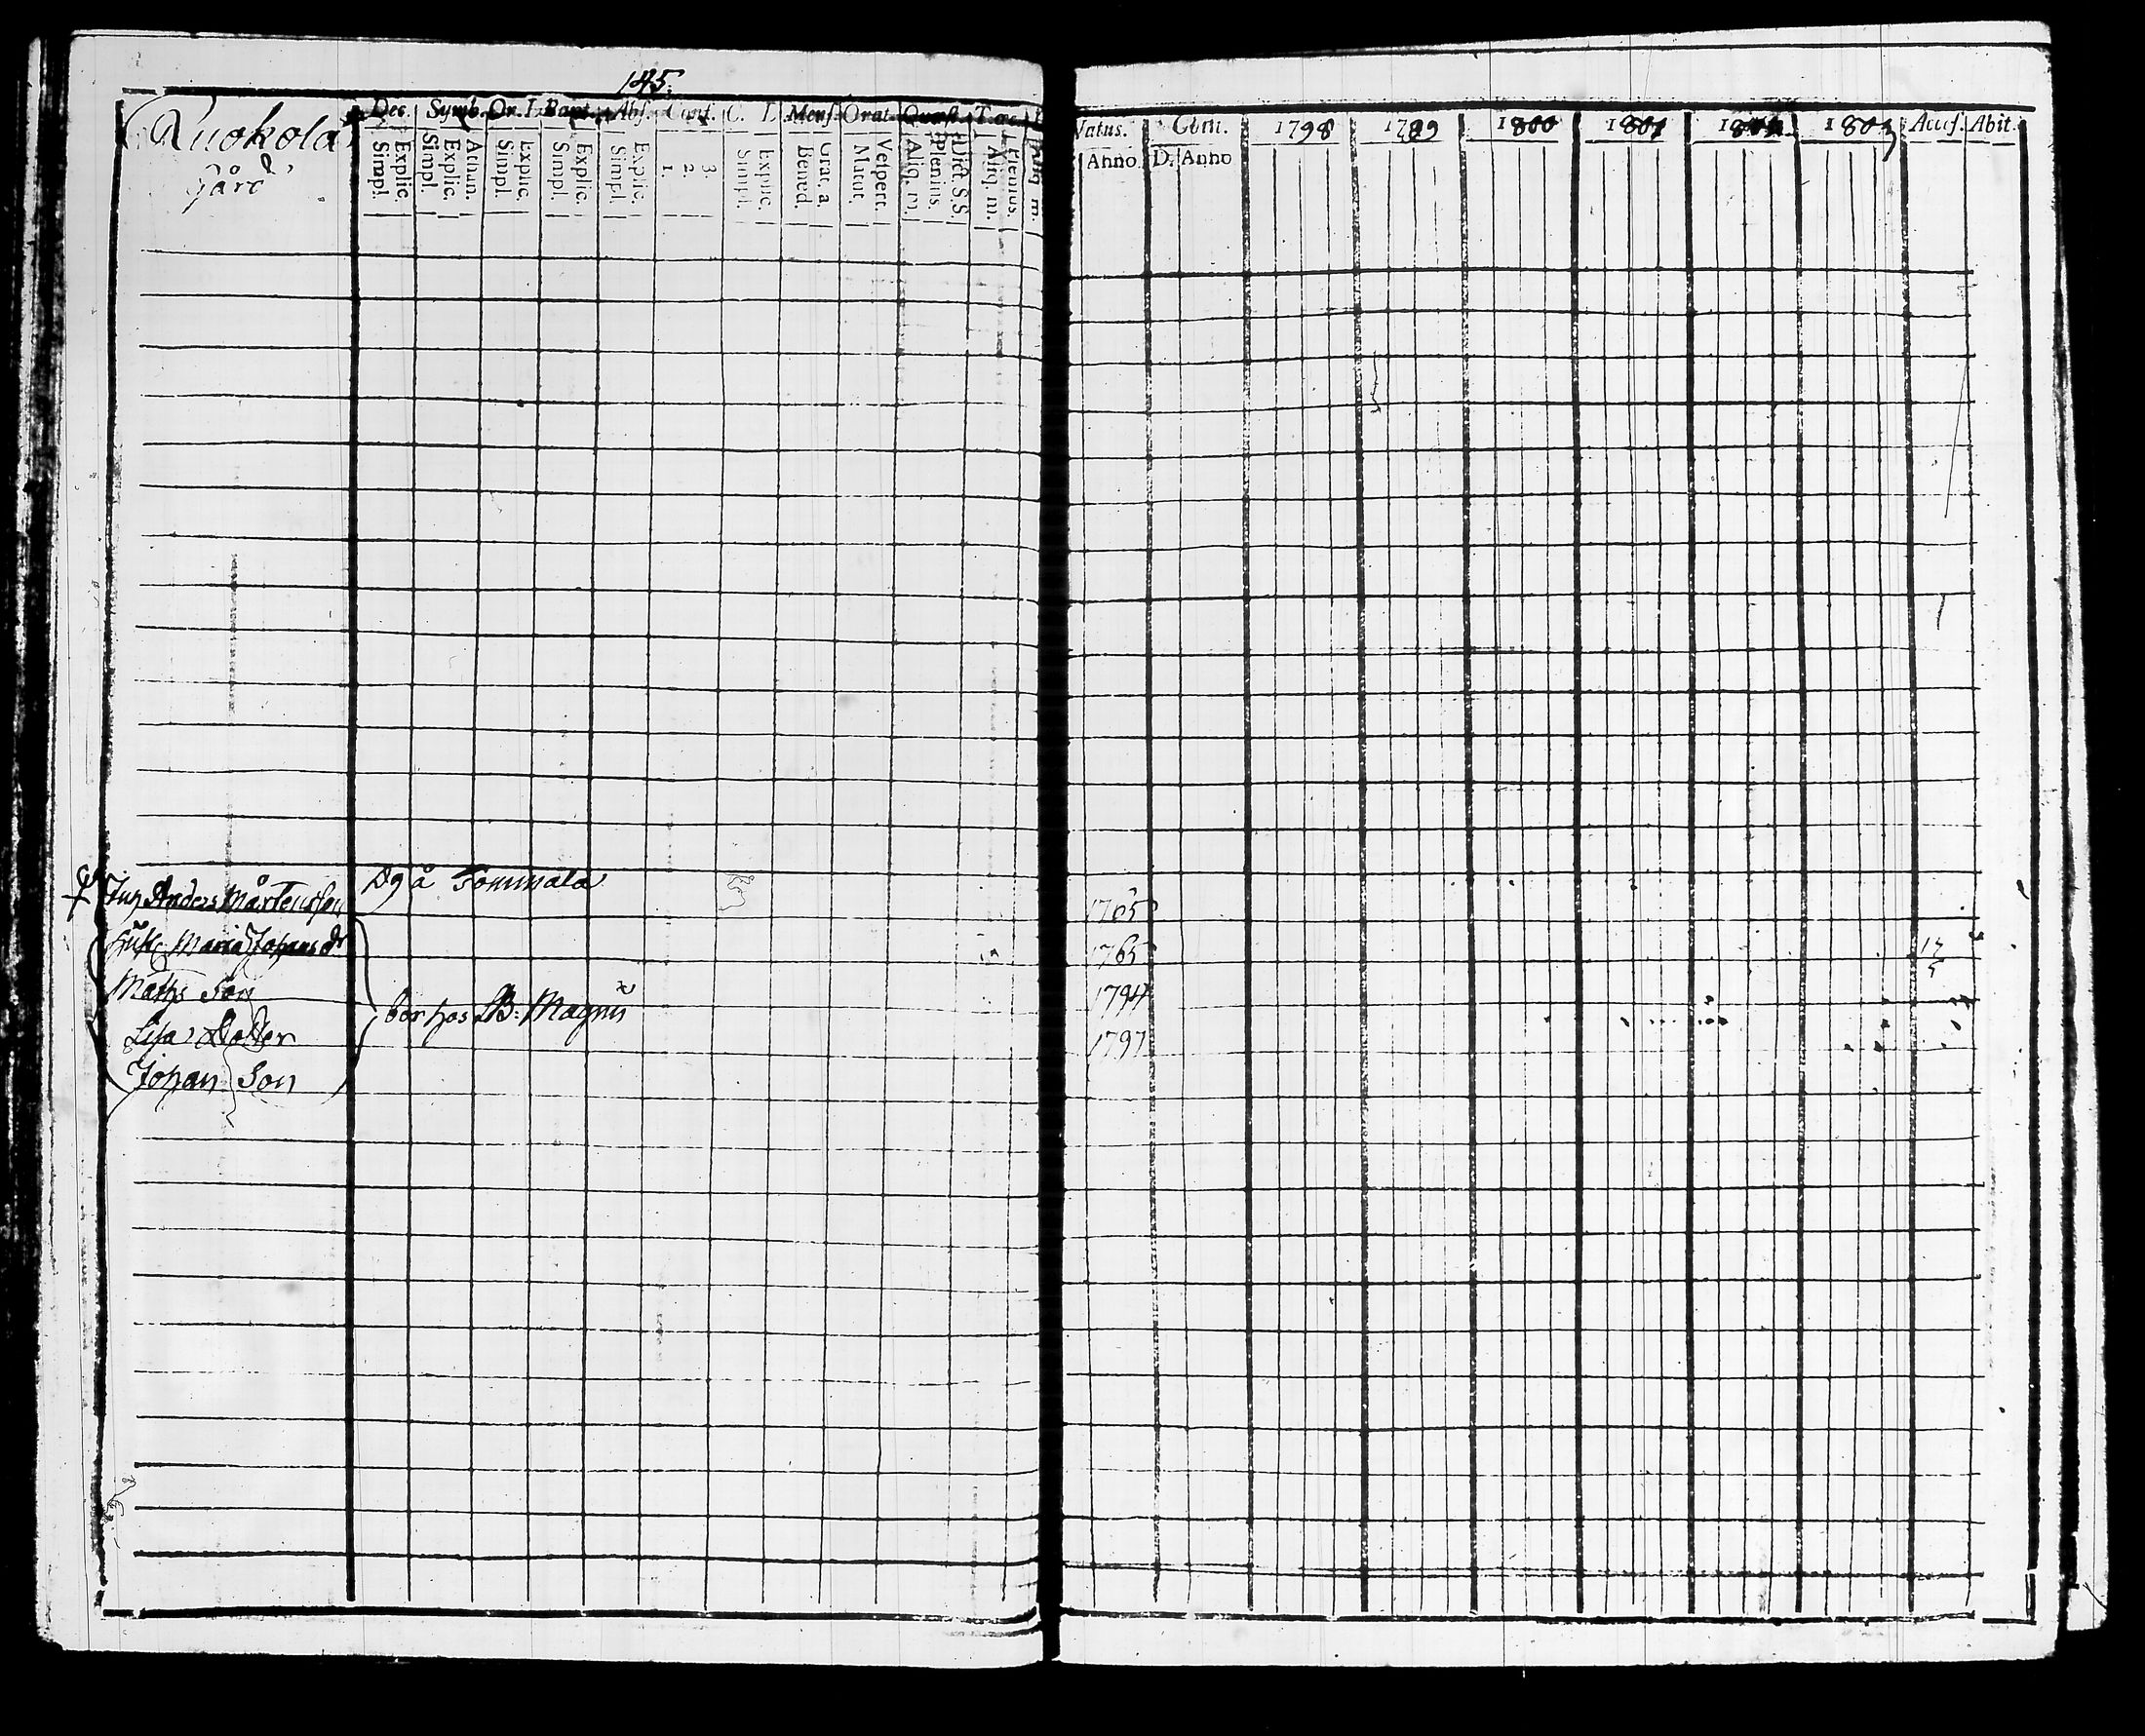 145.
Ruokola
gård
Dec. Symb. Or. D. Bapt. Abs. Conf. C. D. Mens. Orat. Quæst.
Simpl. Explic. Simpl. Explic. Athan. Simpl. Explic. Simpl. Explic. Simpl. Explic. 1. 2. 3. Simpl. Explic. Bened. Grat. a. Matut. Vespert. Aliq. m. Plenius. Dict. S.S. Aliq. m. Plenius. Aliq. m.
Natus. Com. 1798 1799 1800 1801 1803 Accus. Abit.
Anno D. Anno
Dg å Tommola
Anders Mårtensson 1765
Maria Johans dr 1765 17/5
Maths Son 1794
bor hos B: Magnu
Lisa Dotter 1797
Johan Son